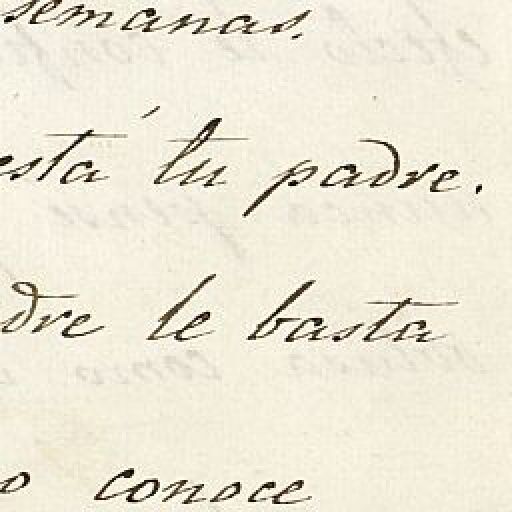 semanas.
está tu padre.
dre le basta
o conoce